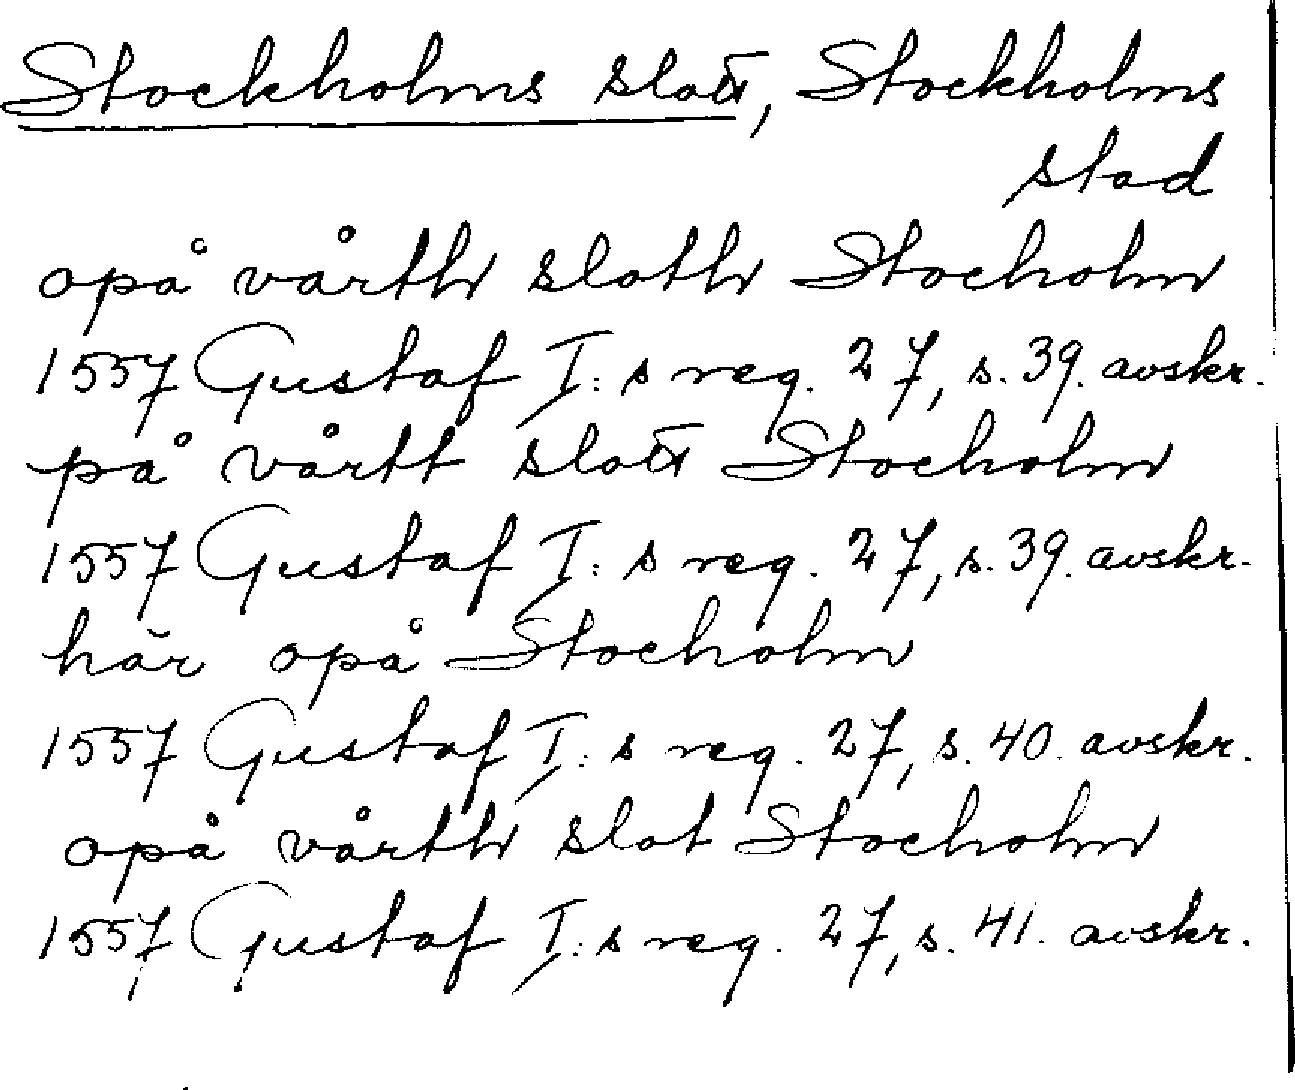 Stockholms slott, Stockholms
stad
opå vårth sloth Stocholm
1557 Gustaf I:s reg. 27, s. 39. avskr.
på vårtt slott Stocholm
1557 Gustaf I:s reg. 27, s. 39. avskr.
här opå Stocholm
1557 Gustaf I:s reg. 27, s. 40. avskr.
opå vårth slot Stocholm
1557 Gustaf I:s reg. 27, s. 41. avskr.